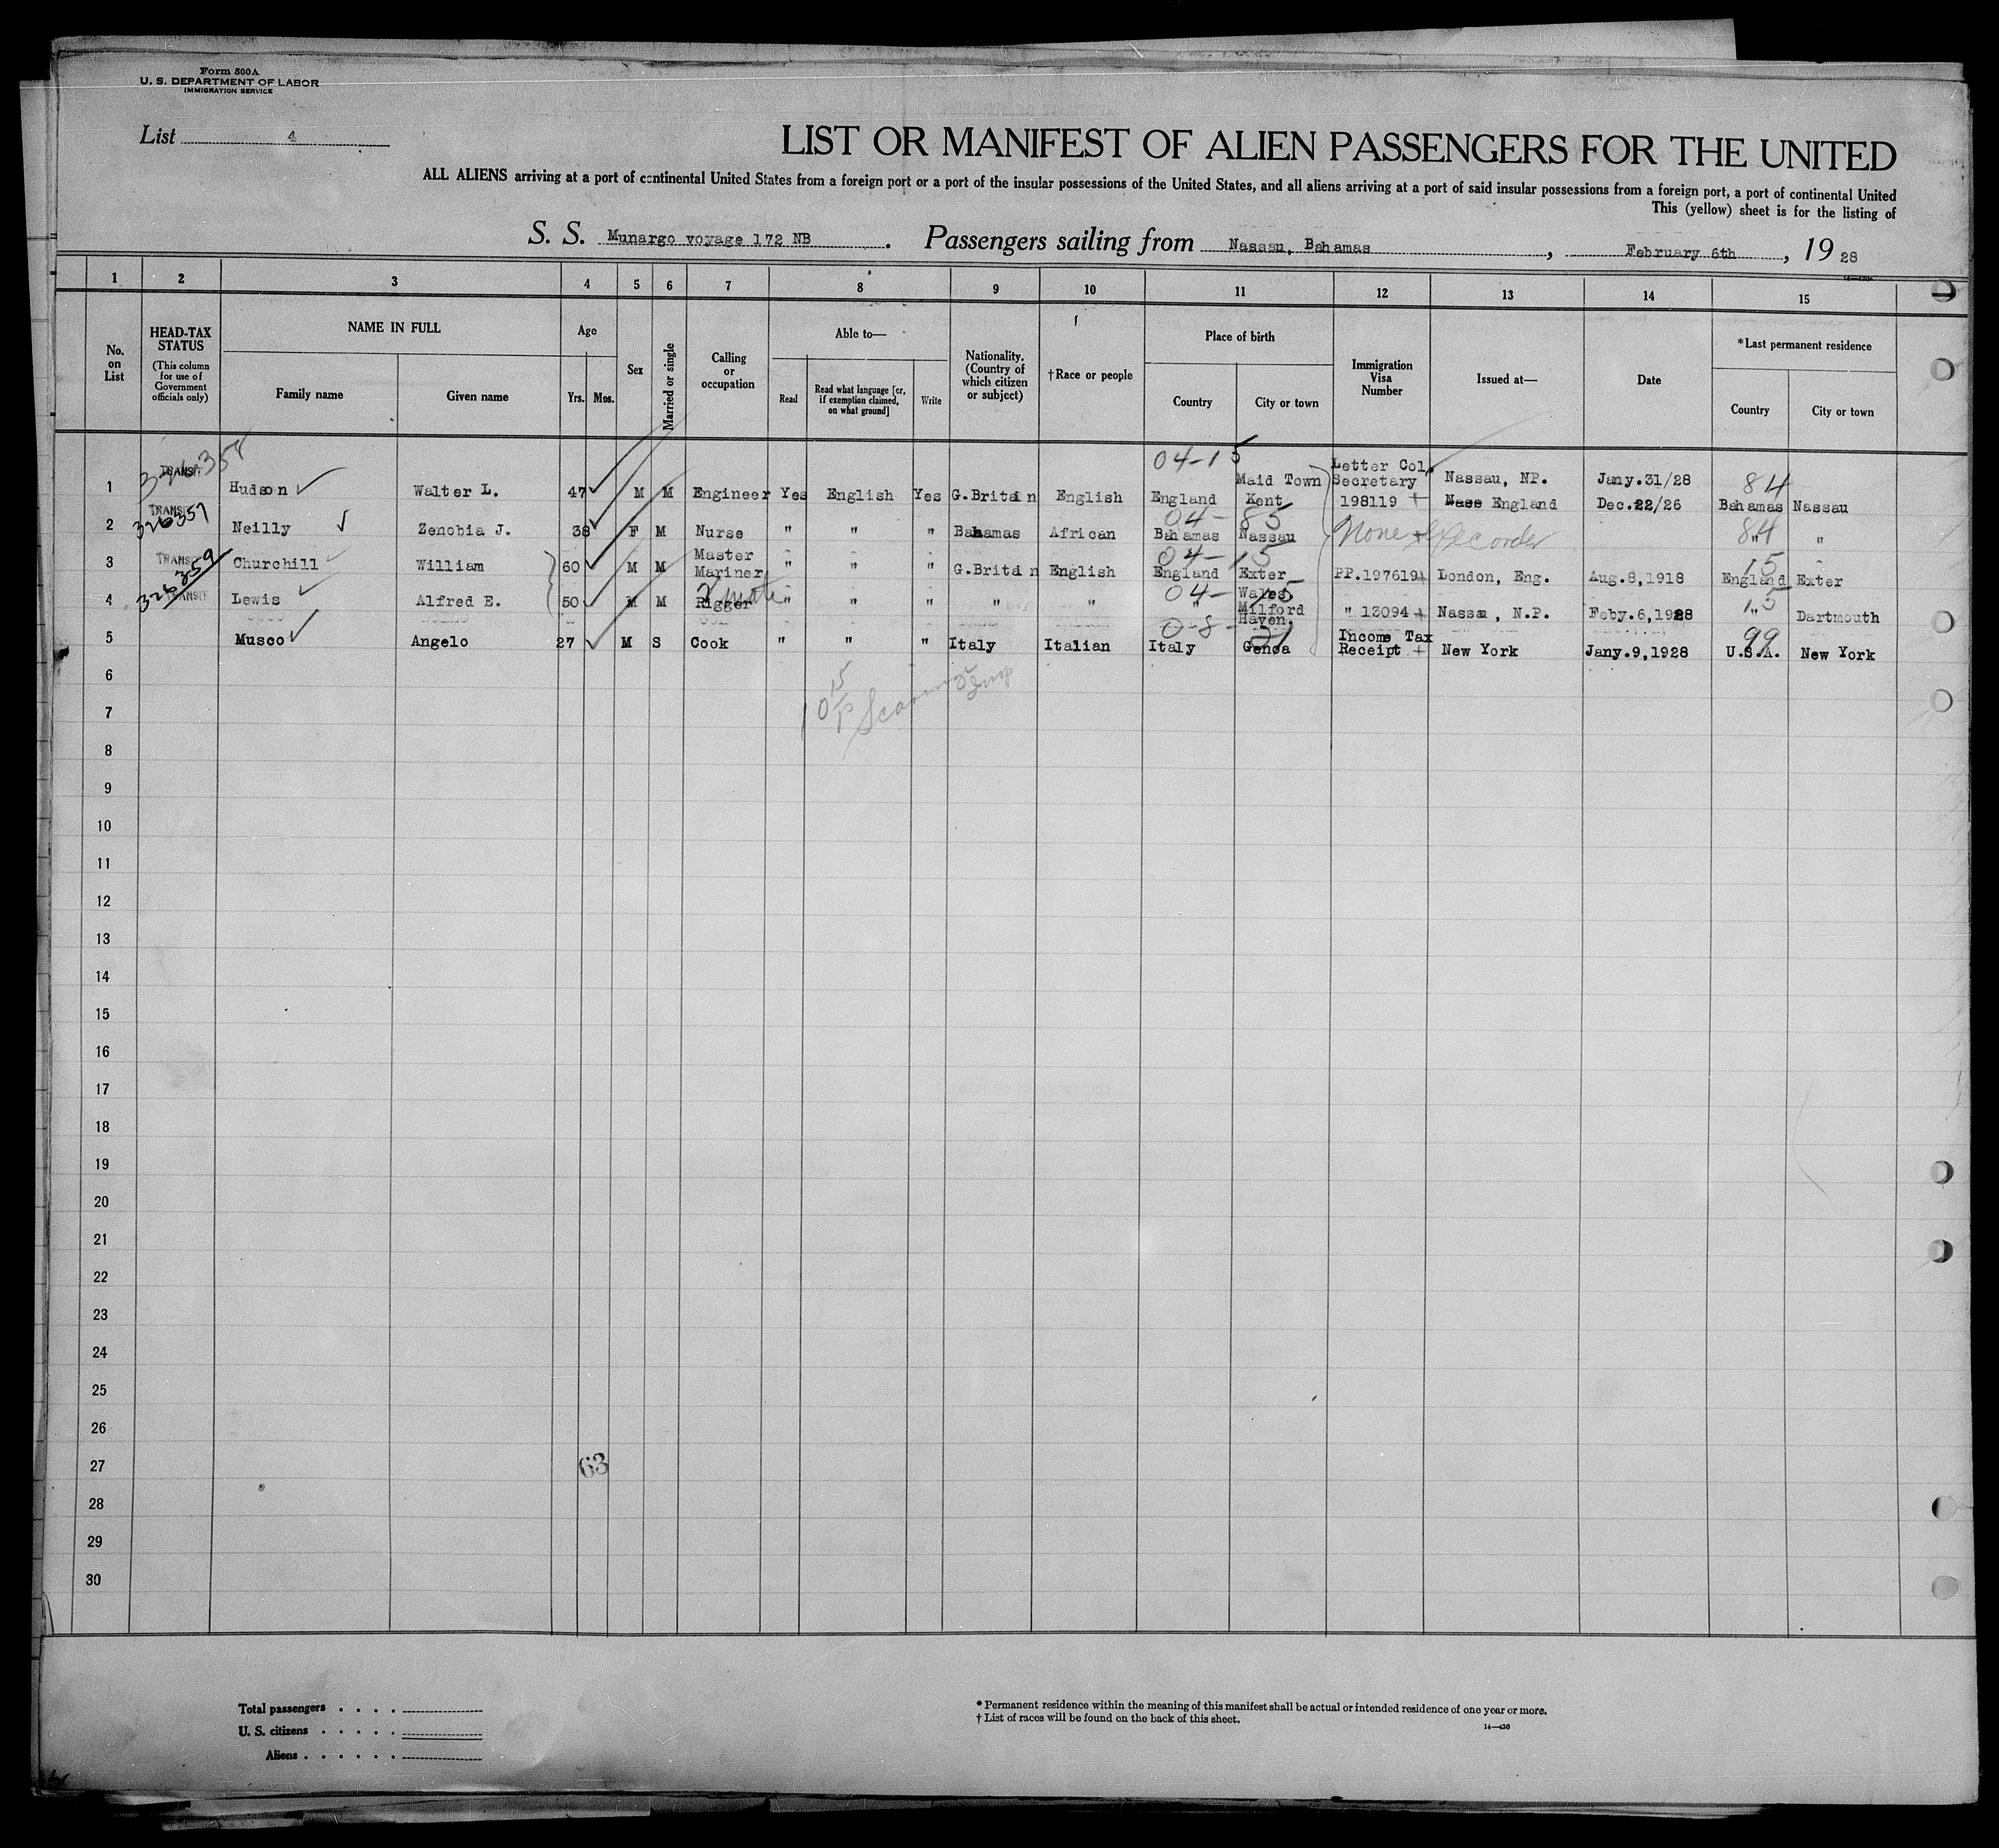 Form 500A
U. S. DEPARTMENT OF LABOR
IMMIGRATION SERVICE
List 4
LIST OR MANIFEST OF ALIEN PASSENGERS FOR THE UNITED
ALL ALIENS arriving at a port of continental United States from a foreign port or a port of the insular possessions of the United States, and all aliens arriving at a port of said insular possessions from a foreign port, a port of continental United
This (yellow) sheet is for the listing of
S. S. Munargo voyage 172 NB . Passengers sailing from Nassau, Bahamas , February 6th , 19 28
1 2 3 4 5 6 7 8 9 10 11 12 13 14 15
No. on List
HEAD-TAX STATUS
(This column for use of Government officials only)
NAME IN FULL
Family name
Given name
Age
Yrs.
Mos.
Sex
Married or single
Calling or occupation
Able to—
Read
Read what language [or, if exemption claimed, on what ground]
Write
Nationality. (Country of which citizen or subject)
†Race or people
Place of birth
Country
City or town
Immigration Visa Number
Issued at—
Date
*Last permanent residence
Country
City or town
1 TRANSIT 326358 Hudson Walter L. 47 M M Engineer Yes English Yes G.Britain English 04-15 England Maid Town Kent Letter Col. Secretary 198119 + Nassau, NP. Nass England Jany.31/28 Dec.22/26 84 Bahamas Nassau
2 TRANSIT 326357 Neilly Zenobia J. 38 F M Nurse " " " Bahamas African 04-85 Bahamas Nassau None + 84 " "
3 TRANSIT 326359 Churchill William 60 M M Master Mariner " " " G.Britain English 04-15 England Exter PP.197619+ London, Eng. Aug.8,1918 15 England Exter
4 TRANSIT Lewis Alfred E. 50 M M Rigger 2 mate " " " " " 04-15 " Wales Milford Haven. " 13094 + Nassau, N.P. Feby.6,1928 15 " Dartmouth
5 Musco Angelo 27 M S Cook " " " Italy Italian 0-8-21 Italy Genoa Income Tax Receipt + New York Jany.9,1928 99 U.S.A. New York
6
7
8
9
10
11
12
13
14
15
16
17
18
19
20
21
22
23
24
25
26
27 63
28
29
30
Total passengers . . . .
U. S. citizens . . . . .
Aliens . . . . . .
* Permanent residence within the meaning of this manifest shall be actual or intended residence of one year or more.
† List of races will be found on the back of this sheet.
14—430